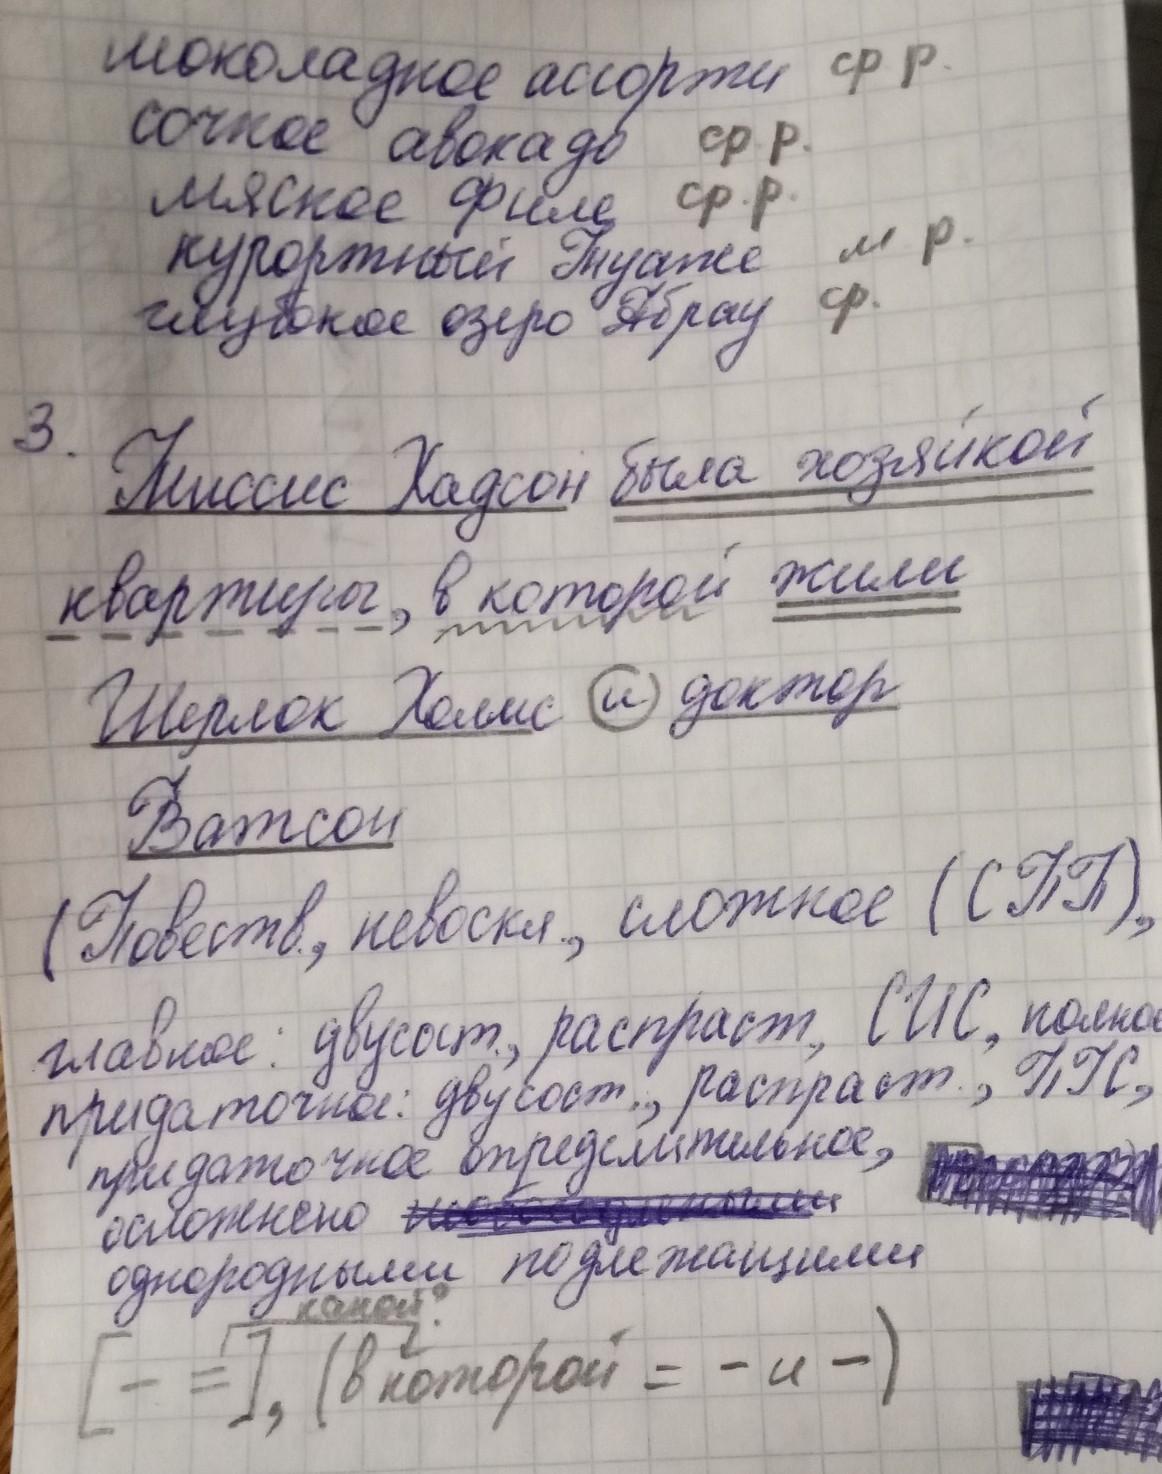 шоколадное ассорти ср р.
сочное авокадо ср. р.
мясное филе ср. р.
курортный Туапсе м р.
глубокое озеро Абрау ср.
3. Миссис Хадсон была хозяйкой
квартиры, в которой жили
Шерлок Холмс и доктор
Ватсон
(Повеств., невоскл., сложное (СПП),
главное: двусост., распраст., СИС, полное
придаточное: двусост., распраст., ПГС,
придаточное определительное,
осложнено
однородными подлежащими
какой?
[- =], (в которой = - и -)